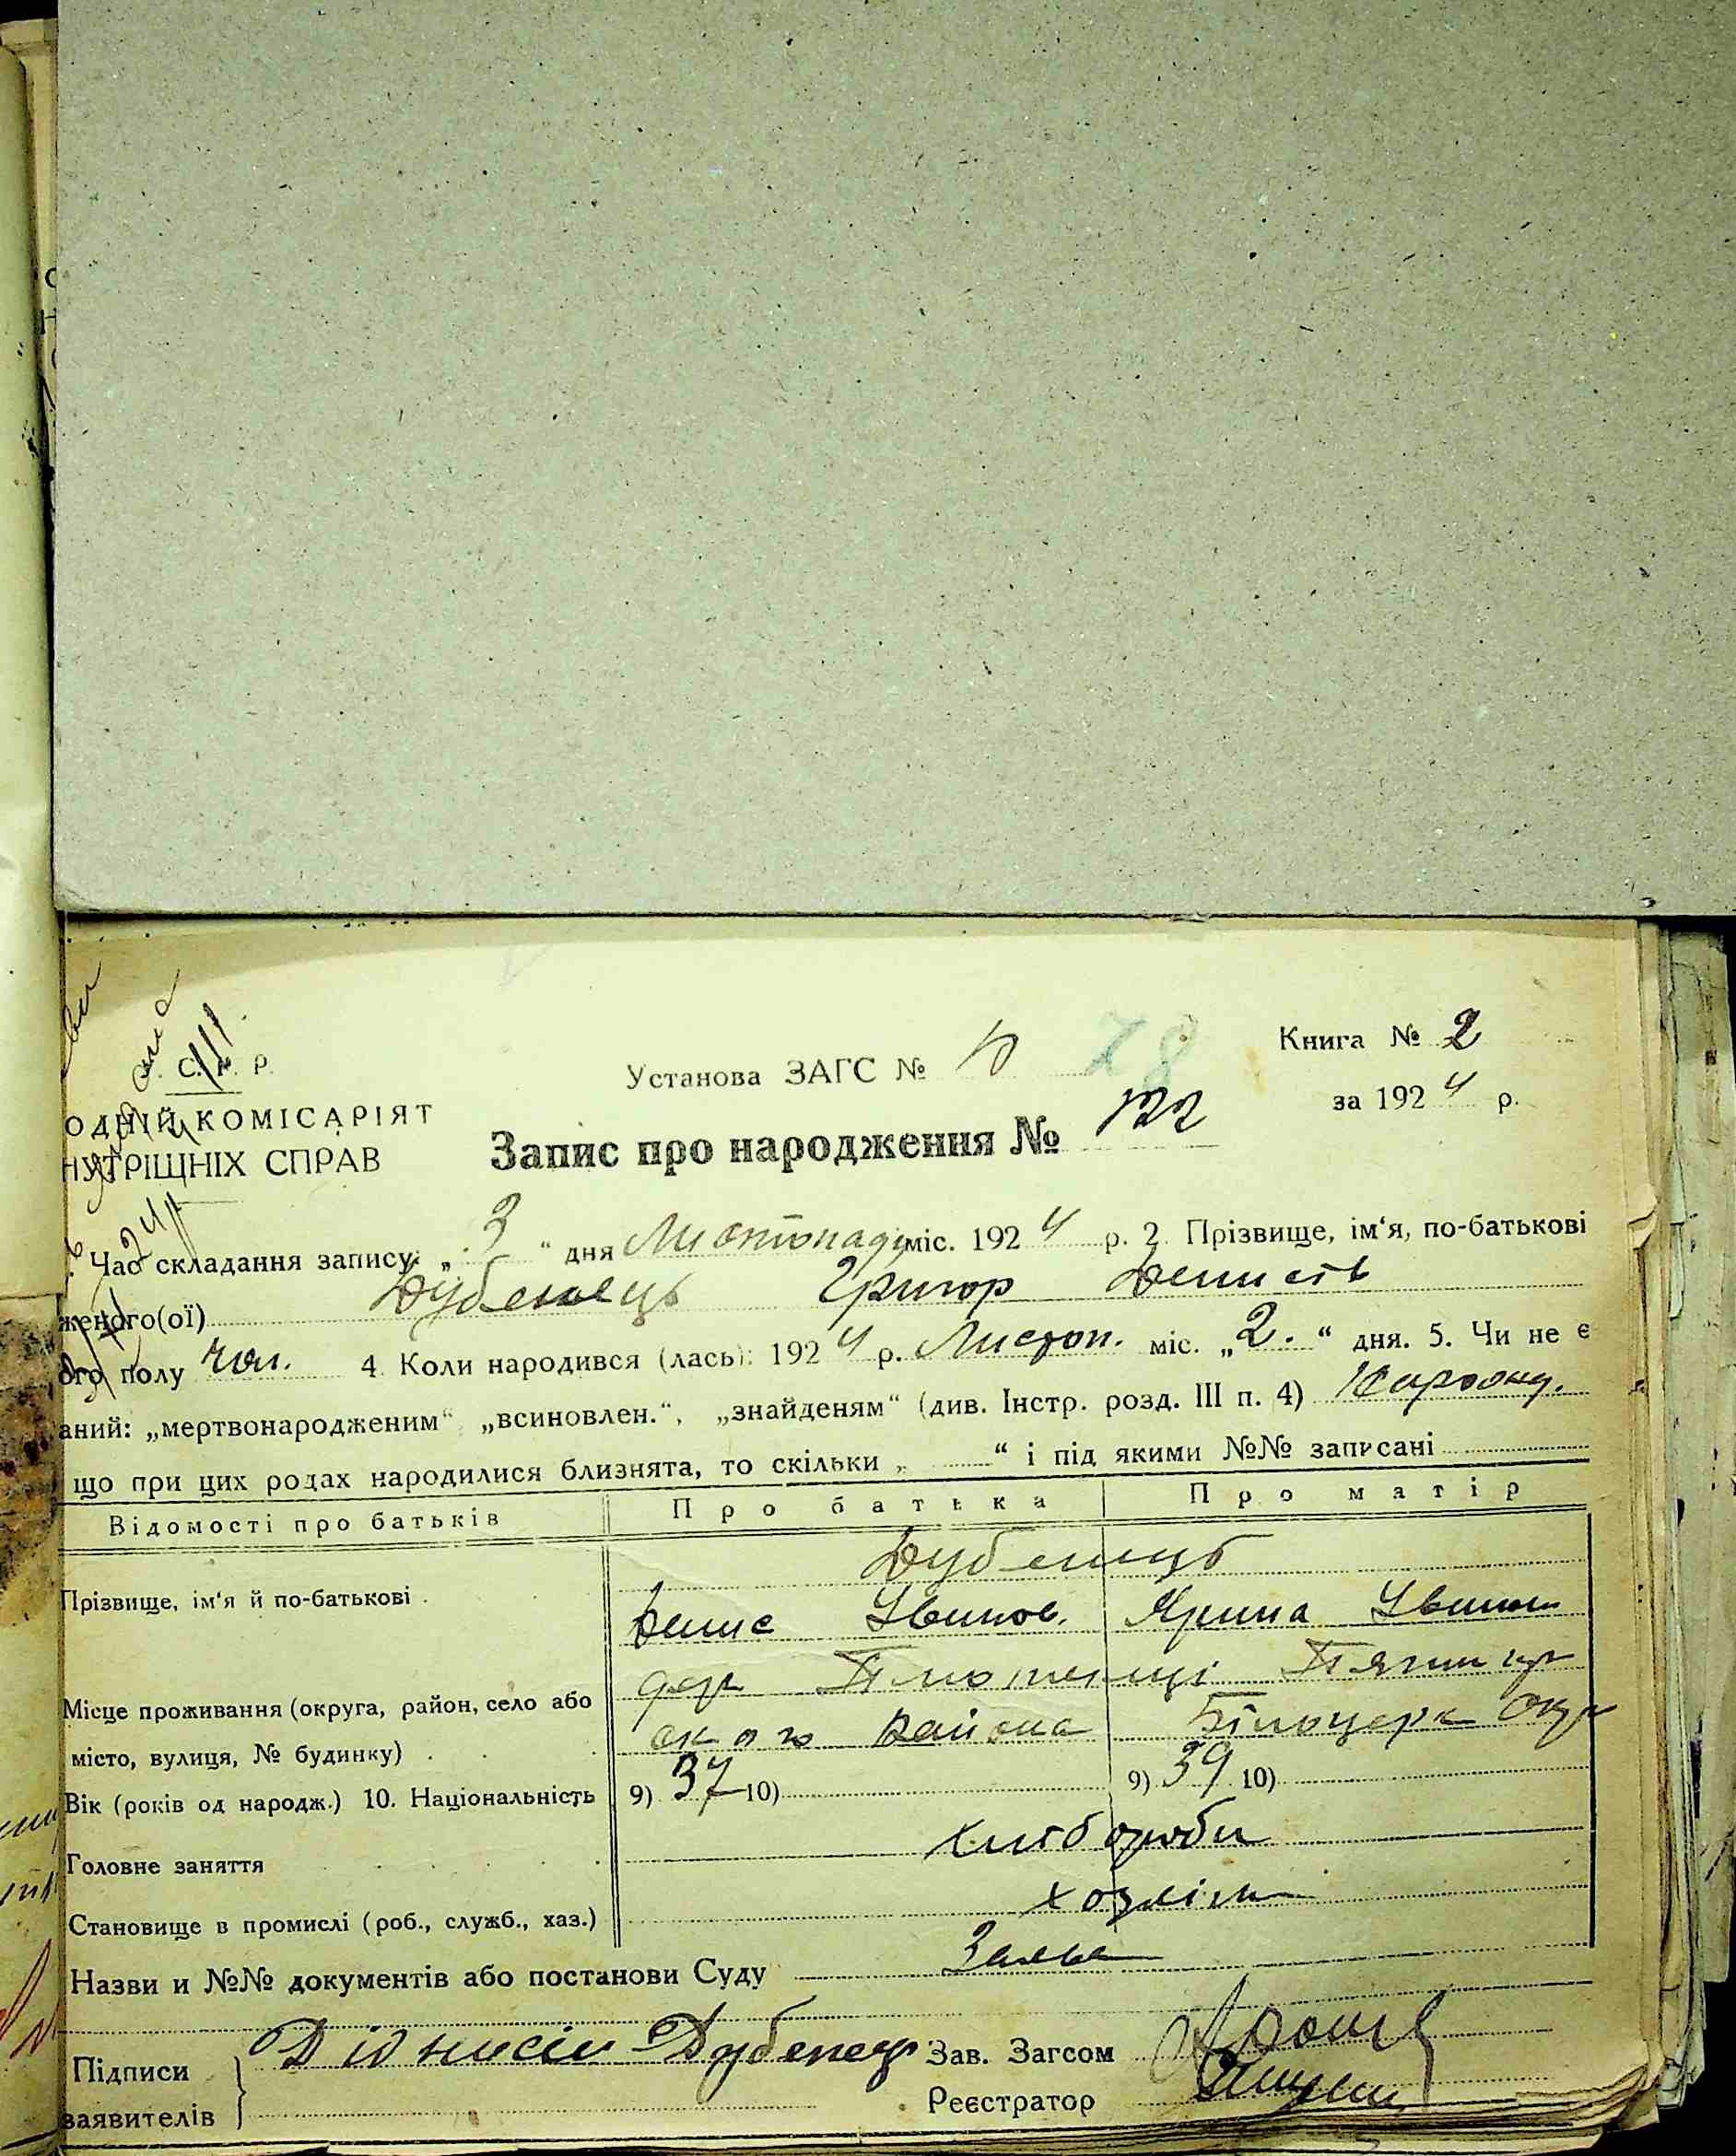 С. Р. Р.
Установа ЗАГС № 10 78
Книга № 2
ОДНІЙ КОМІСАРІЯТ
за 1924 р.
НУТРІЩНІХ СПРАВ
Запис про народження № 122
Час складання запису: „ 3 “ дня Листопаду міс. 1924 р. 2. Прізвище, ім‘я, по-батькові
женого(ої) Дубенець Григор Денисів
ого полу чол. 4. Коли народився (лась): 1924 р. Листоп. міс. „2.“ дня. 5. Чи не є
аний: „мертвонародженим“ „всиновлен.“, „знайденям“ (див. Інстр. розд. III п. 4) Народж.
що при цих родах народилися близнята, то скільки „ “ і під якими №№ записані
Відомості про батьків
Про батька
Про матір
Дубенець
Прізвище, ім‘я й по-батькові
Денис Івинов. Ярина Івинов
Місце проживання (округа, район, село або
дер
місто, вулиця, № будинку)
ского Району Білоцерк Окр
Вік (років од народж.) 10. Національність 9) 37 10) 9) 39 10)
Головне заняття
хлібороби
Становище в промислі (роб., служб., хаз.)
хозяїн
Назви и №№ документів або постанови Суду Заява
Підписи
заявителів
Діонисій Дубенец
Зав. Загсом
Реєстратор